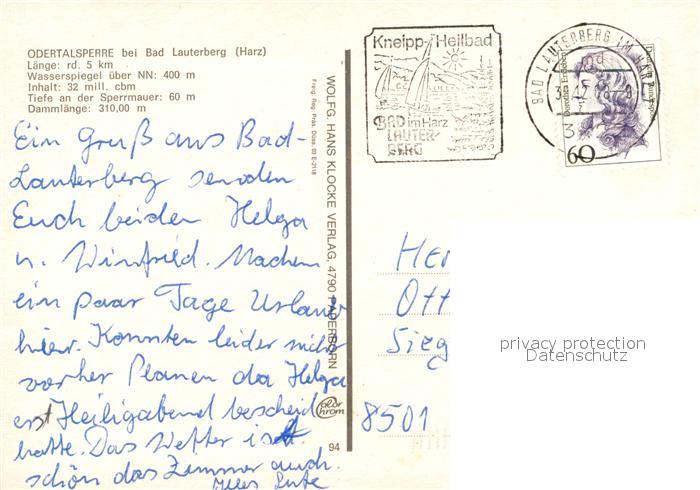 ODERTALSPERRE bei Bad Lauterberg (Harz)
Länge: rd. 5 km
Wasserspiegel über NN: 400 m
Inhalt: 32 mill. cbm
Tiefe an der Sperrmauer: 60 m
Dammlänge: 310,00 m
Ein Gruß aus Bad-
Lauterberg senden
Euch beiden Helga
u. Winfried. Machen
ein paar Tage Urlaub
hier. Konnten leider nicht
vorher Planen da Helga
erst Heiligabend bescheid
hatte. Das Wetter ist
schön das Zimmer auch.
Alles Gute
WOLFG. HANS KLOCKE VERLAG, 4790 PADERBORN
Freig. Reg. Präs. Düss. 03 E-2118
color
chrom
94
Kneipp-Heilbad
BAD im Harz
LAUTER-
BERG
BAD LAUTERBERG IM HARZ
Dorothea Erxleben
Deutsche Bundespost
60
Her
Ott
Sieg
8501
privacy protection
Datenschutz